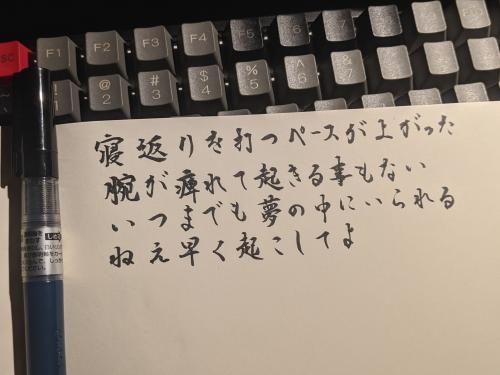 SC
F1 F2 F3 F4 F5 F6 F7
! 1 @ 2 # 3 $ 4 % 5 ^ 6 & 7
寝返りを打つペースが上がった
腕が痺れて起きる事もない
いつまでも夢の中にいられる
ねえ早く起こしてよ